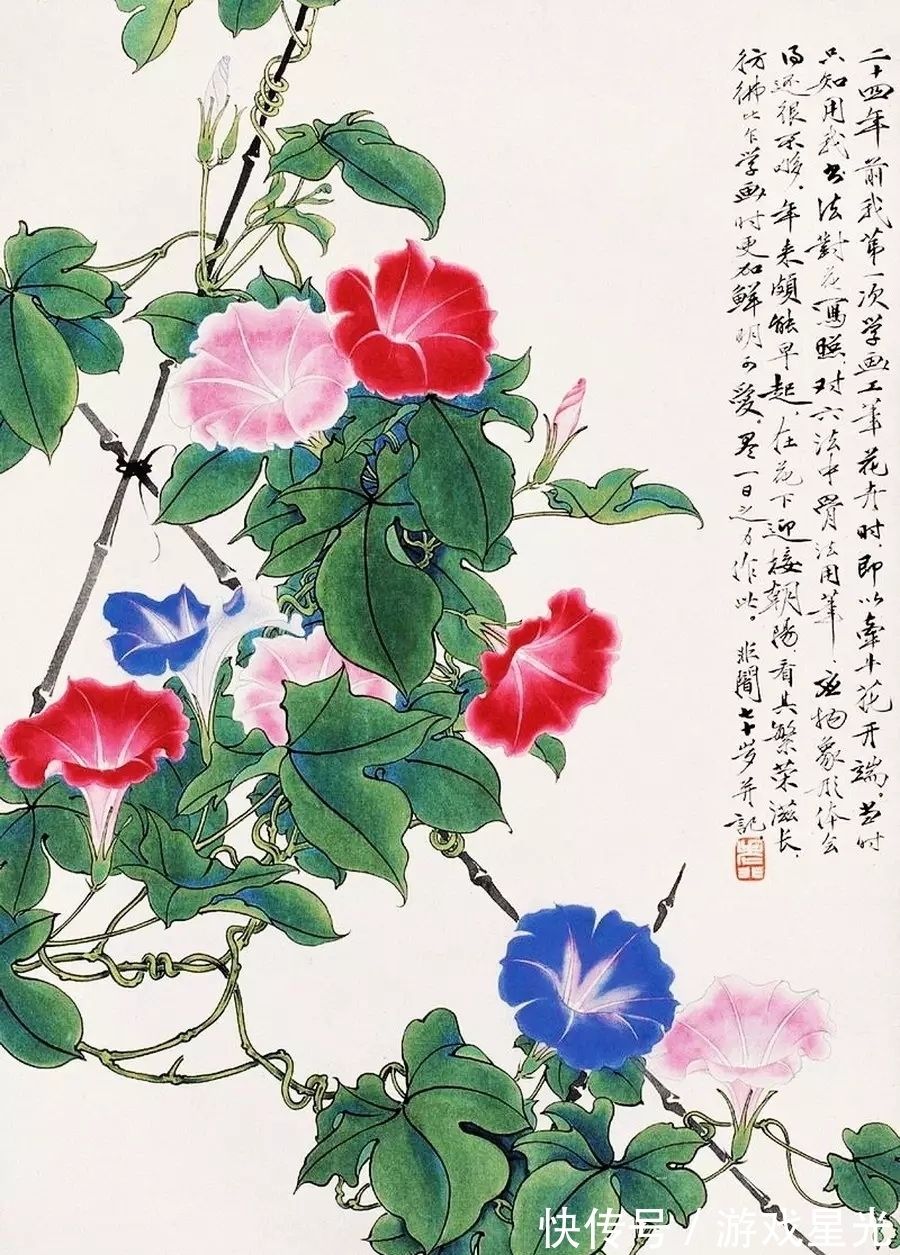 二十四年前我第一次学画工笔花卉时即以牵牛花开端。当时
只知用我书法對花寫照，对六法中骨法用笔、应物象形体会
得还很不够。年来頗能早起，在花下迎接朝陽，看其繁荣滋长，
彷彿比乍学画时更加鮮明可爱。尽一日之力作此。非闇七十岁并記。
快传号 / 游戏星光